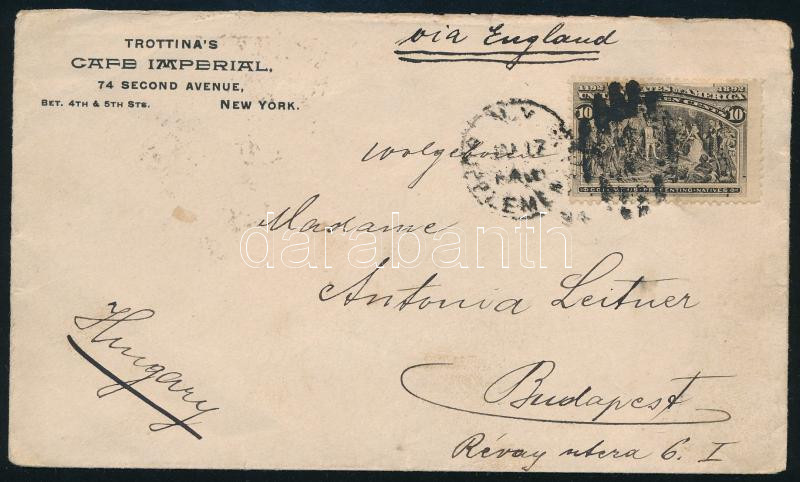 TROTTINA'S
CAFE IMPERIAL,
74 SECOND AVENUE,
BET. 4TH & 5TH STS. NEW YORK.
via England
1492 1892
UNITED STATES OF AMERICA
10 10
COLUMBUS PRESENTING NATIVES
N.Y.
17
Madame
Antonia Leitner
Hungary
Budapest
Révay utcza 6. I
darabanth